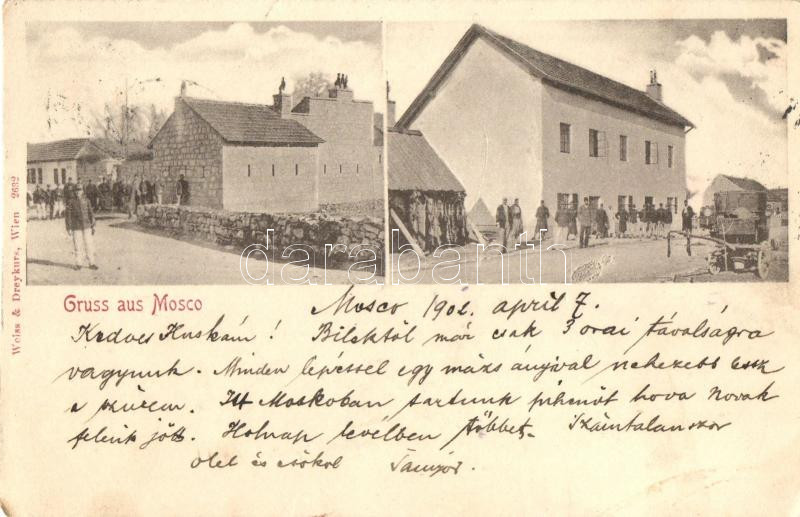 Gruss aus Mosco
Weiss & Dreykurs, Wien 2632
darabanth
Mosco 1902. april 7.
Kedves Huskám! Bilektől már csak 3 orai távolságra
vagyunk. Minden lépéssel egy mázs ányival nehezebb lessz
a szűzem. Itt Moskoban tartunk pihenőt hova Novak
felénk jött. Holnap levélben többet. Számtalanszor
ölel és csókol Sanyós.